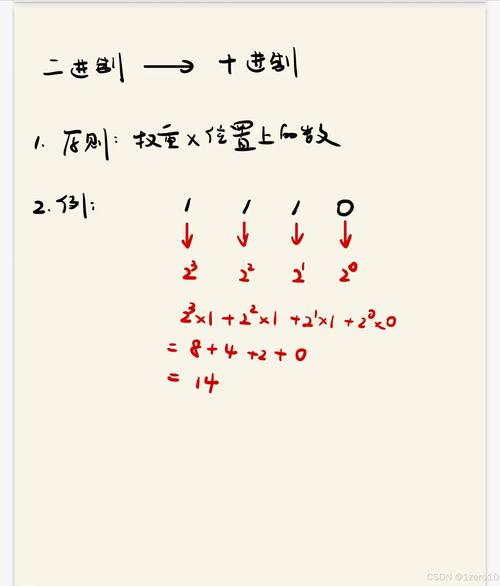 二进制 → 十进制
1. 原则：权重×位置上的数
2. 例：  1  1  1  0
↓ ↓ ↓ ↓
2³ 2² 2¹ 2⁰
2³×1+2²×1+2¹×1+2⁰×0
= 8+4+2+0
= 14
CSDN @1zero10